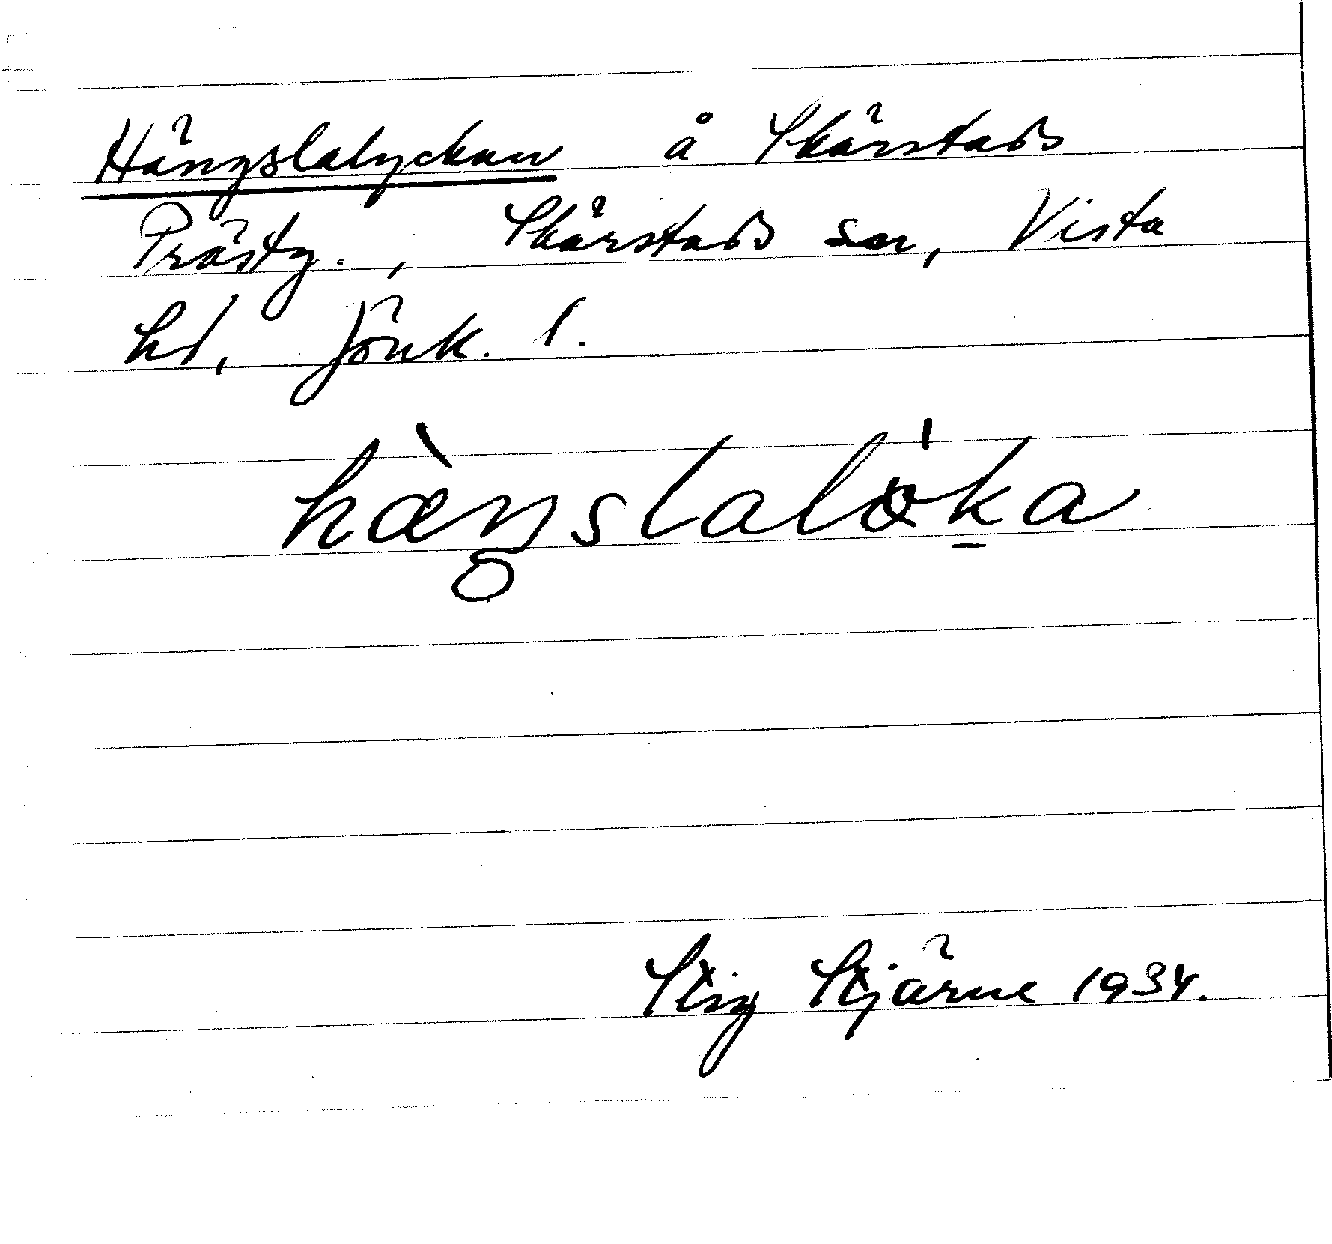 Hängslalyckan å Skärstads
Prästg., Skärstads sn, Vista
hd, Jönk. l.
hæ̀ŋslalöka
Stig Stjärne 1934.